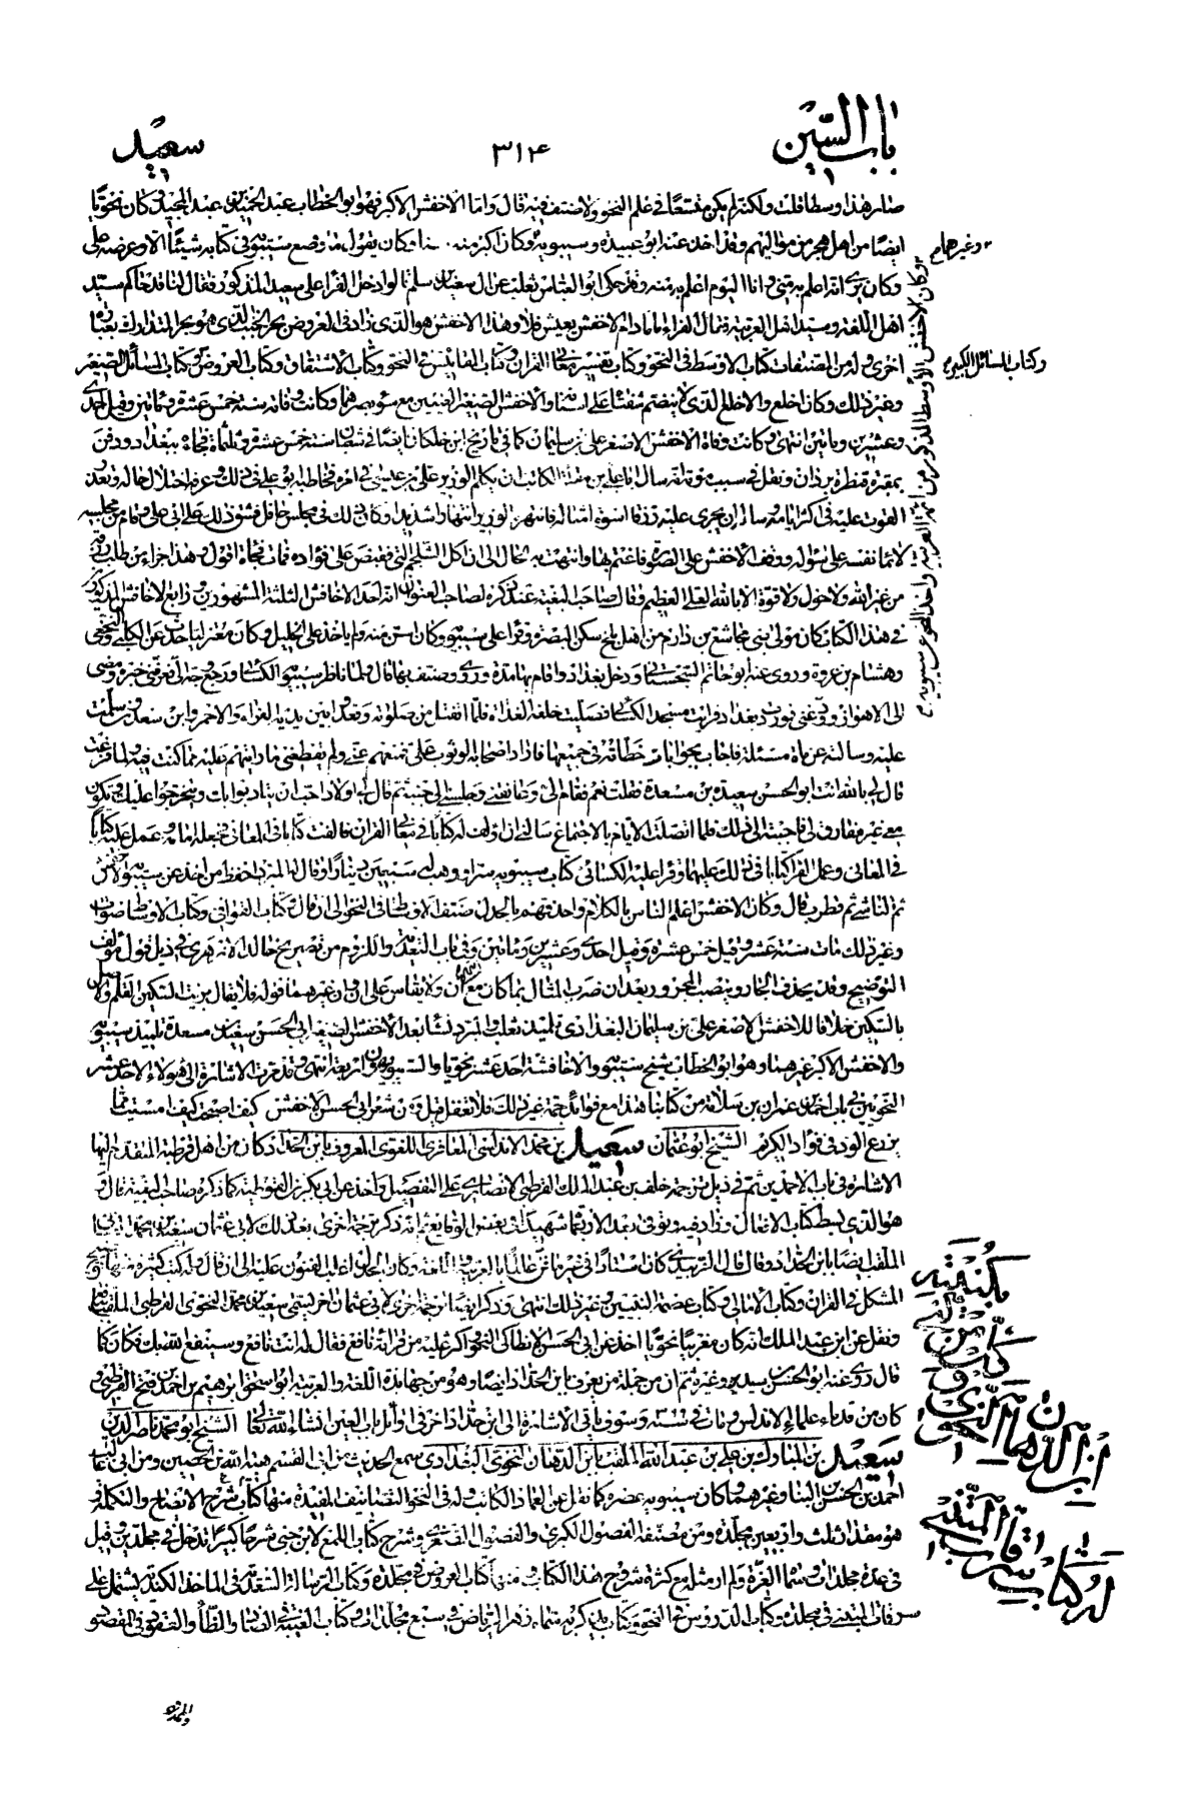 باب السّين
٣١۴
سعيد
صار هذا وسطا قلت ولكنه لم يكن متسعا في علم النحو ولا صنف فيه قال واما الاخفش الاكبر فهو ابو الخطاب عبد الحميد بن عبد المجيد وكان نحويا
ايضا من اهل هجر من مواليهم وقد اخذ عنه ابو عبيدة وسيبويه وكان اكبر منه وكان يقول ما وضع سيبويه في كتابه شيئا الا وعرضه علي
وغيرهما م
وكان يرى انه اعلم به مني وانا اليوم اعلم به منه وحكى ابو العباس ثعلب عن ال سعيد بن سلم قالوا دخل الفراء على سعيد المذكور فقال لنا قد جاءكم سيد
اهل اللغة وسيد اهل العربية فقال الفراء اما ما دام الاخفش يعيش فلا وهذا الاخفش هو الذي زاد في العروض بحر الخبب الذي هو بحر المتدارك بعبارة
اخرى وله من المصنفات كتاب الاوسط في النحو وكتاب تفسير معاني القران وكتاب المقائيس في النحو وكتاب الاشتقاق وكتاب العروض وكتاب المسائل الصغير
وكتاب المسائل الكبير م
وغير ذلك وكان اجلع والاجلع الذي لا ينضم شفتاه على اسنانه والاخفش الصغير العينين مع سوء بصرهما وكانت وفاته سنة خمس عشرة ومائتين وقيل احدى
وعشرين ومائتين انتهى وكانت وفاة الاخفش الاصغر علي بن سليمان كما في تاريخ ابن خلكان ايضا في شعبان سنة خمس عشرة وثلثمائة فجأة ببغداد ودفن
بمقبرة قنطرة بردان ونقل في سبب موته انه سأل ابا علي بن مقلة الكاتب ان يكلم الوزير علي بن عيسى في امره فخاطبه ابو علي في ذلك وعرفه اختلال حاله وتعذر
القوت عليه في اكثر ايامه وسأل ان يجري عليه رزقا اسوة امثاله فانتهره الوزير انتهارا شديدا وكان ذلك في مجلس حافل فشق ذلك على ابي علي وقام من مجلسه
لائما نفسه على سؤاله ووقف الاخفش على الصورة فاغتم بها وانتهت به الحال الى ان اكل الشلجم الني فقبض على فؤاده فمات فجأة اقول وهذا جزاء من طلب
من غير الله ولا حول ولا قوة الا بالله العلي العظيم وقال صاحب البغية عند ذكره لصاحب العنوان انه احد الاخافش الثلثة المشهورين ورابع الاخافش المذكور
في هذا الكتاب كان مولى بني مجاشع بن دارم من اهل بلخ سكن البصرة وقرأ على سيبويه وكان اسن منه ولم ياخذ على الخليل وكان معتزليا حدث عن الكلبي والنخعي
وهشام بن عروة وروى عنه ابو حاتم السجستاني ودخل بغداد واقام بها مدة وروى وصنف بها قال ولما ناظر سيبويه الكسائي ورجع وجه الي فعرفني خبره ومضى
الى الاهواز وودعني فوردت بغداد فرأيت مسجد الكسائي فصليت خلفه الغداة فلما انفتل من صلوته وقعد وبين يديه الفراء والاحمر وابن سعدان سلمت
عليه وسألته عن مأة مسئلة فاجاب بجوابات خطأته في جميعها فاراد اصحابه الوثوب علي فمنعهم عني ولم يقطعني ما رايتهم عليه مما كنت فيه ولما فرغت
قال لي بالله انت ابو الحسن سعيد بن مسعدة فقلت نعم فقام الي وعانقني واجلسني الى جنبه ثم قال لي اولاد احب ان يتأدبوا بك ويتخرجوا عليك وتكون
معي غير مفارق لي فاجبته الى ذلك فلما اتصلت الايام بالاجتماع سالني ان اؤلف له كتابا في معاني القران فالفت كتابا في المعاني فجعله امامه وعمل عليه كتابا
في المعاني وعمل الفراء كتابا في ذلك عليهما وقرأ عليه الكسائي كتاب سيبويه سرا ووهب له سبعين دينارا وقال المبرد احفظ من اخذ عن سيبويه الاخفش
ثم الناشي ثم قطرب قال وكان الاخفش اعلم الناس بالكلام واحذقهم بالجدل صنف الاوسط في النحو الى ان قال كتاب القوافي وكتاب الاصوات
وغير ذلك مات سنة عشر وقيل خمس عشرة وقيل احدى وعشرين ومائتين وفي باب التعدي واللزوم من تصريح خالد الازهري في ذيل قول مؤلف
التوضيح وقد يحذف الجار وينصب المجرور بعد ان ضرب المثال بما كان مع ان ولا يقاس على ان وان غيرهما قوله فلا يقال بريت السكين القلم والاصل
بالسكين خلافا للاخفش الاصغر علي بن سليمان البغدادي تلميذ ثعلب والمبرد نشأ بعد الاخفش الصغير ابي الحسن سعيد بن مسعدة تلميذ سيبويه
والاخفش الاكبر غيرهما وهو ابو الخطاب شيخ سيبويه والاخافشة احد عشر نحويا والسيبويهون اربعة انتهى وقد مرت الاشارة الى هؤلاء الاحد عشر
النحويين في باب احمد بن عمران بن سلامة من كتابنا هذا مع فوائد جمة غير ذلك فلا تغفل قيل ومن شعر ابي الحسن الاخفش كيف اصبحت كيف امسيت مما
يزرع الود في فؤاد الكريم الشيخ ابو عثمان سعيد بن محمد الاندلسي المعافري اللغوي المعروف بابن الحداد كان من اهل قرطبة المتقدم اليها
الاشارة في باب الاحمدين ثم في ذيل ترجمة خلف بن عبد الملك القرطبي الانصاري على التفصيل واخذ عن ابي بكر بن القوطية كما ذكره صاحب البغية قال و
هو الذي بسط كتاب الافعال وزاد فيه توفي بعد الاربعمائة شهيدا في بعض الوقايع ثم انه ذكر ترجمة اخرى بعد ذلك لابي عثمان سعيد بن محمد
الملقب ايضا بابن الحداد وقال قال الزبيدي كان استاذا في غير ما فن عالما بالعربية واللغة وكان الجدل اغلب الفنون عليه الى ان قال وله كتب كثيرة منها توضيح
المشكل في القران وكتاب الامالي وكتاب عصمة النبيين وغير ذلك انتهى وذكر ايضا ترجمة اخرى لابي عثمان اخر يسمى سعيد بن محمد النحوي القرطبي الملقب
ونقل عن ابن عبد الملك انه كان مقريا نحويا اخذ عن ابي الحسن الانطاكي النحو واكثر عليه من قراءة نافع فقال له انت نافع وسينفع الله بك فكان كما
قال روى عنه ابو الحسن بن سيده وغيره ثم ان من جملة من يعرف بابن الحداد ايضا وهو من جهابذة اللغة والعربية ابو اسحق ابراهيم بن احمد بن فتح القرطبي و
كان من قدماء علماء الاندلس ومات في سنة وسوف ياتي الاشارة الى ابن حداد اخر في اوائل باب العين انشاء الله تعالى الشيخ ابو محمد ناصر الدين
سعيد بن المبارك بن علي بن عبد الله الملقب بابن الدهان النحوي البغدادي سمع الحديث من ابي القسم هبة الله بن الحصين ومن ابي غالب
احمد بن الحسن بن البنا وغيرهما وكان سيبويه عصره كما نقل عن العماد الكاتب وله في النحو التصانيف المفيدة منها كتاب شرح الايضاح والتكملة في
هو مقدار ثلث واربعين مجلدة ومن مصنفه الفصول الكبرى والفصول الصغرى وشرح كتاب اللمع لابن جني شرحا كبيرا تدخل في مجلدين وقيل
في عدة مجلدات وسماه الغرة ولم ار مثله مع كثرة شروح هذا الكتاب ومنها كتاب العروض في مجلدة وكتاب الرسالة السعدية في الماخذ الكندية يشتمل على
سرقات المتنبي في مجلدة وكتاب الدروس في النحو وكتاب تذكرته سماه زهر الرياض في سبع مجلدات وكتاب الغنية في الضاد والظاء والعقود في المقصور
وكان الاخفش الاوسط المذكور من ائمة العربية واخذ النحو عن سيبويه م
ابن الدهان النحوي
له كتاب سرقات المتنبي
والممدود